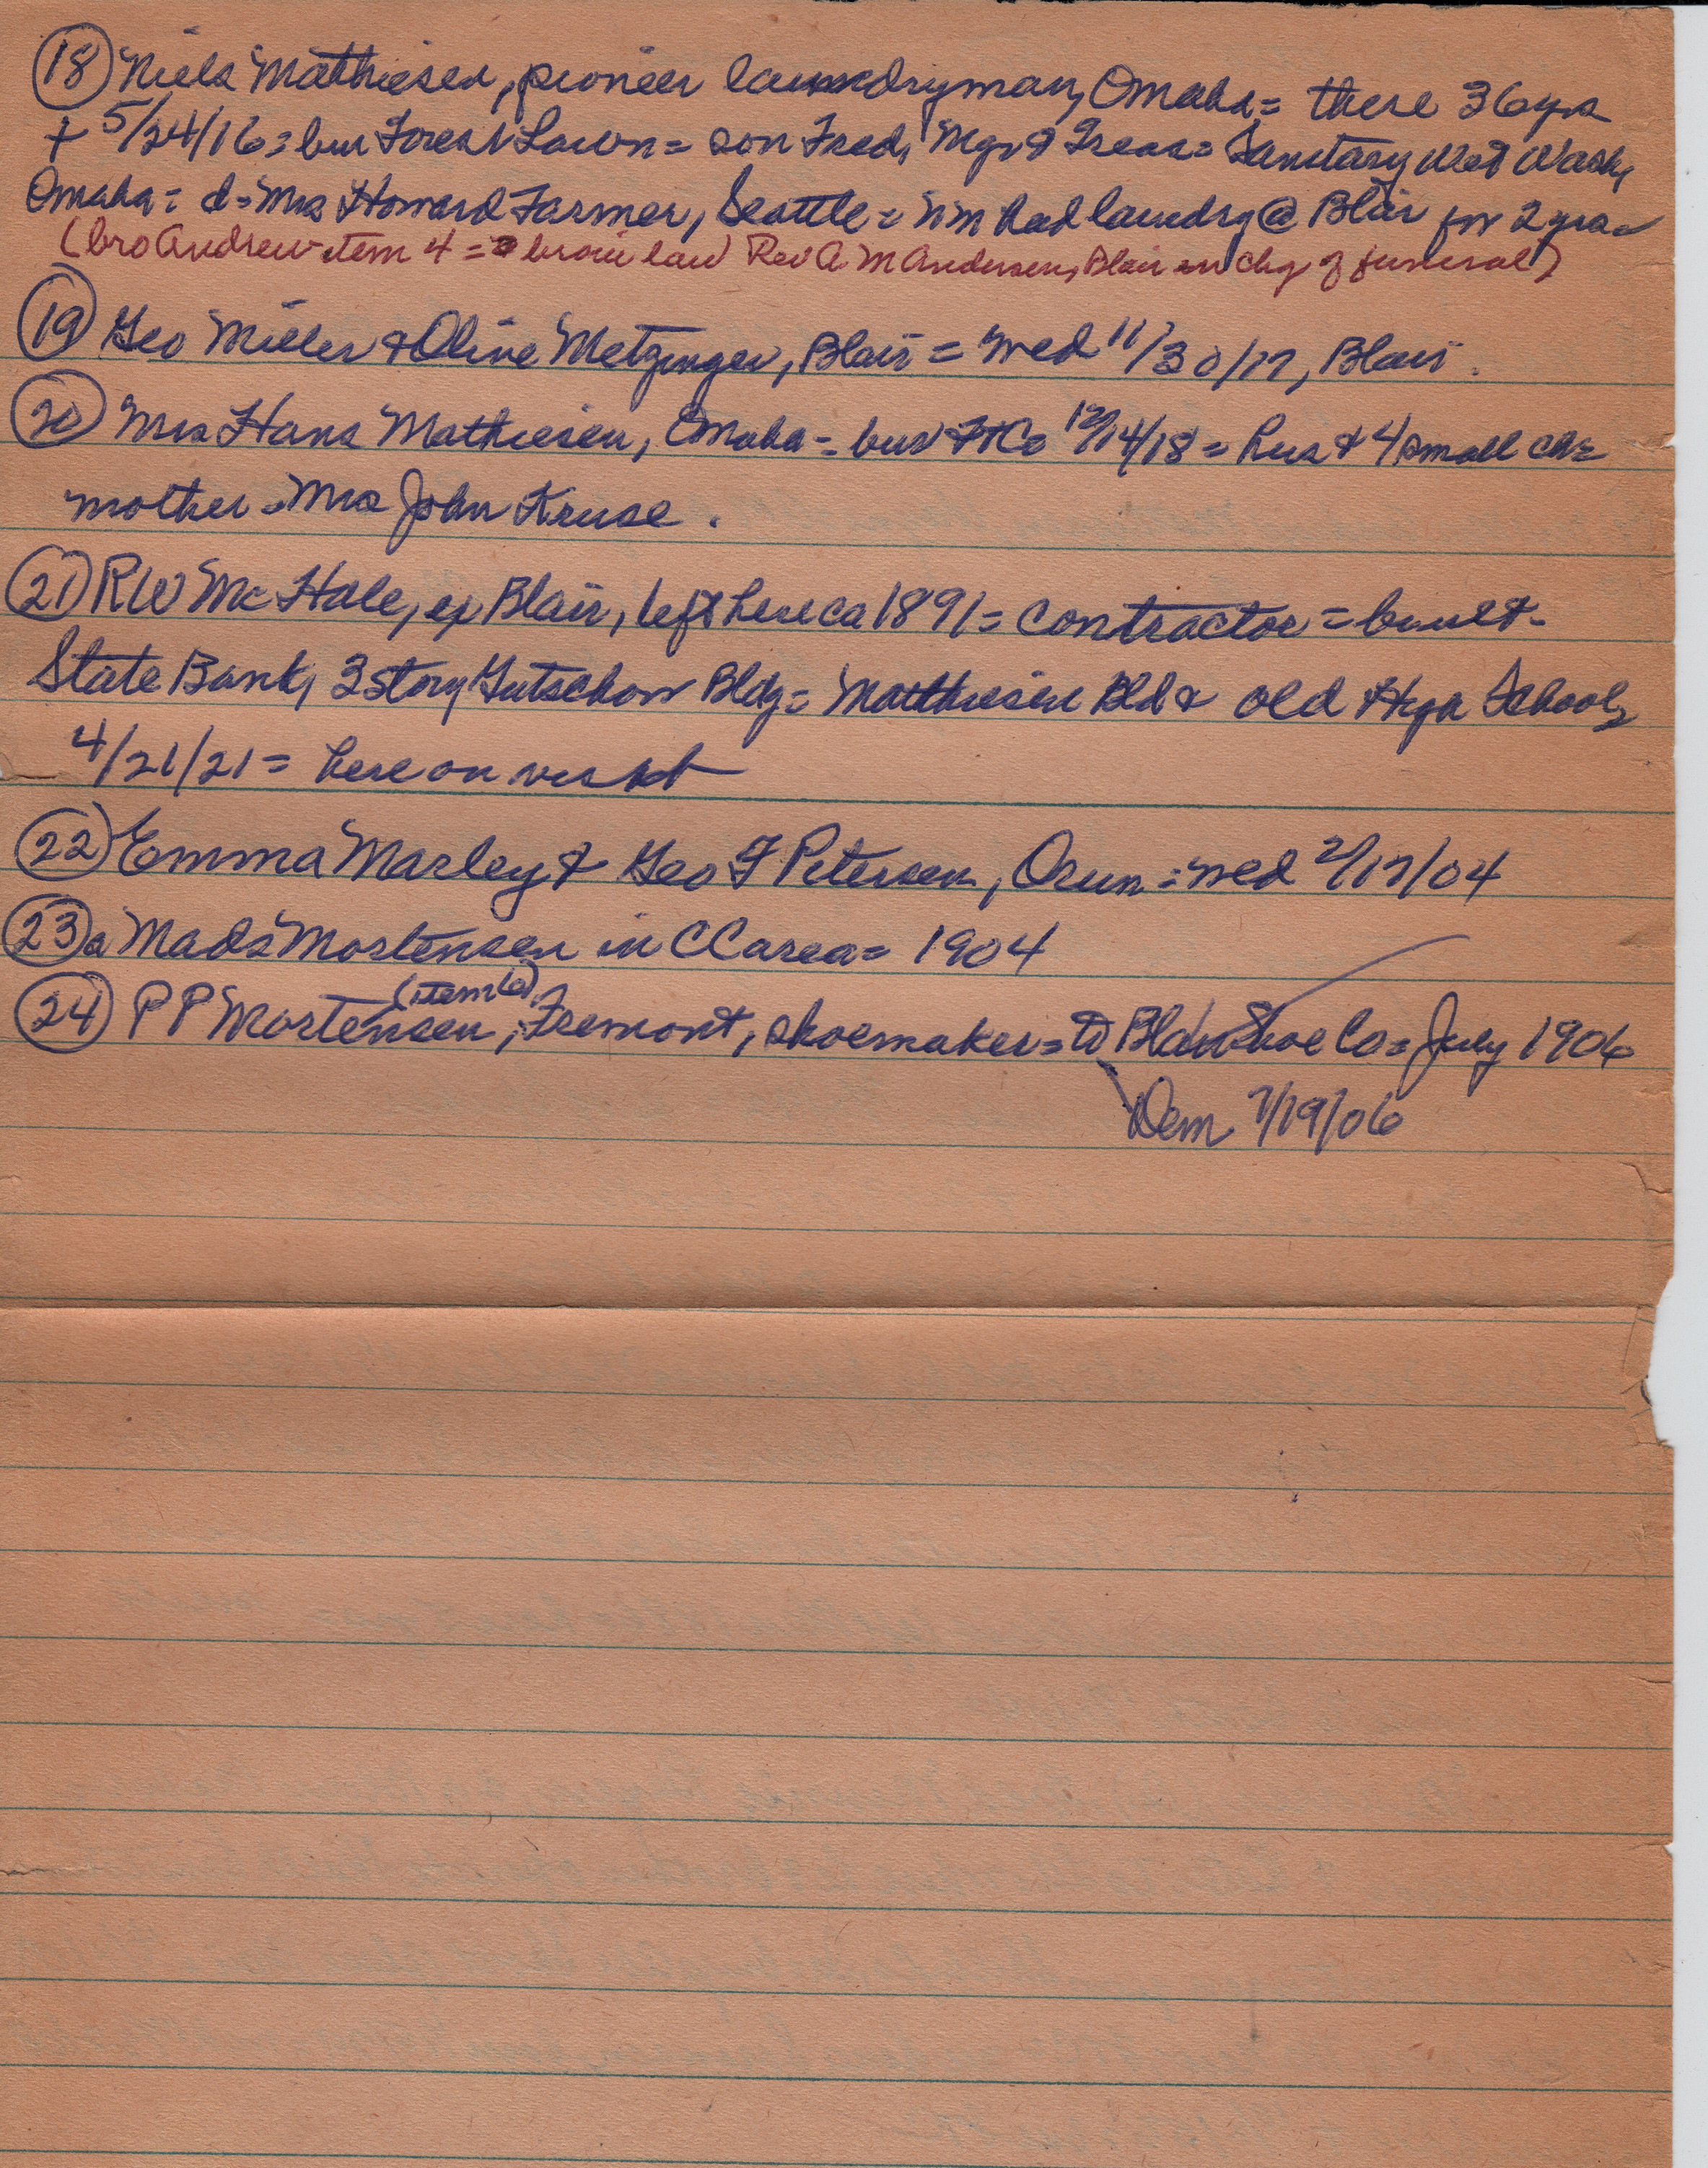 (18) Niels Mathiesen, pioneer laundryman, Omaha = there 36 yrs
+ 5/24/16 = bur Forest Lawn = son Fred, Mgr & Treas = Sanitary Wet Wash,
Omaha = d = Mrs Howard Farmer, Seattle = NM had laundry @ Blair for 2 yrs =
(bro Andrew - item 4 = bro in law Rev A M Andersen, Blair in chg of funeral)
(19) Geo Miller & Olive Metzinger, Blair = wed 11/30/17, Blair.
(20) Mrs Hans Mathiesen, Omaha = bur 12/14/18 = hus & 4 small ch =
mother = Mrs John Kruse.
(21) RW McHale, ex Blair, left here ca 1891 = contractor = built -
State Bank, 3 story Gutschow Bldg = Matthiesen Bld & old High School,
4/21/21 = here on visit
(22) Emma Marley & Geo F Petersen, Orum = wed 2/17/04
(23) a Mads Mortensen in CC area = 1904
(24) PP Mortensen, (item 6) Fremont, shoemaker = to Blair Shoe Co = July 1906
Dem 7/19/06